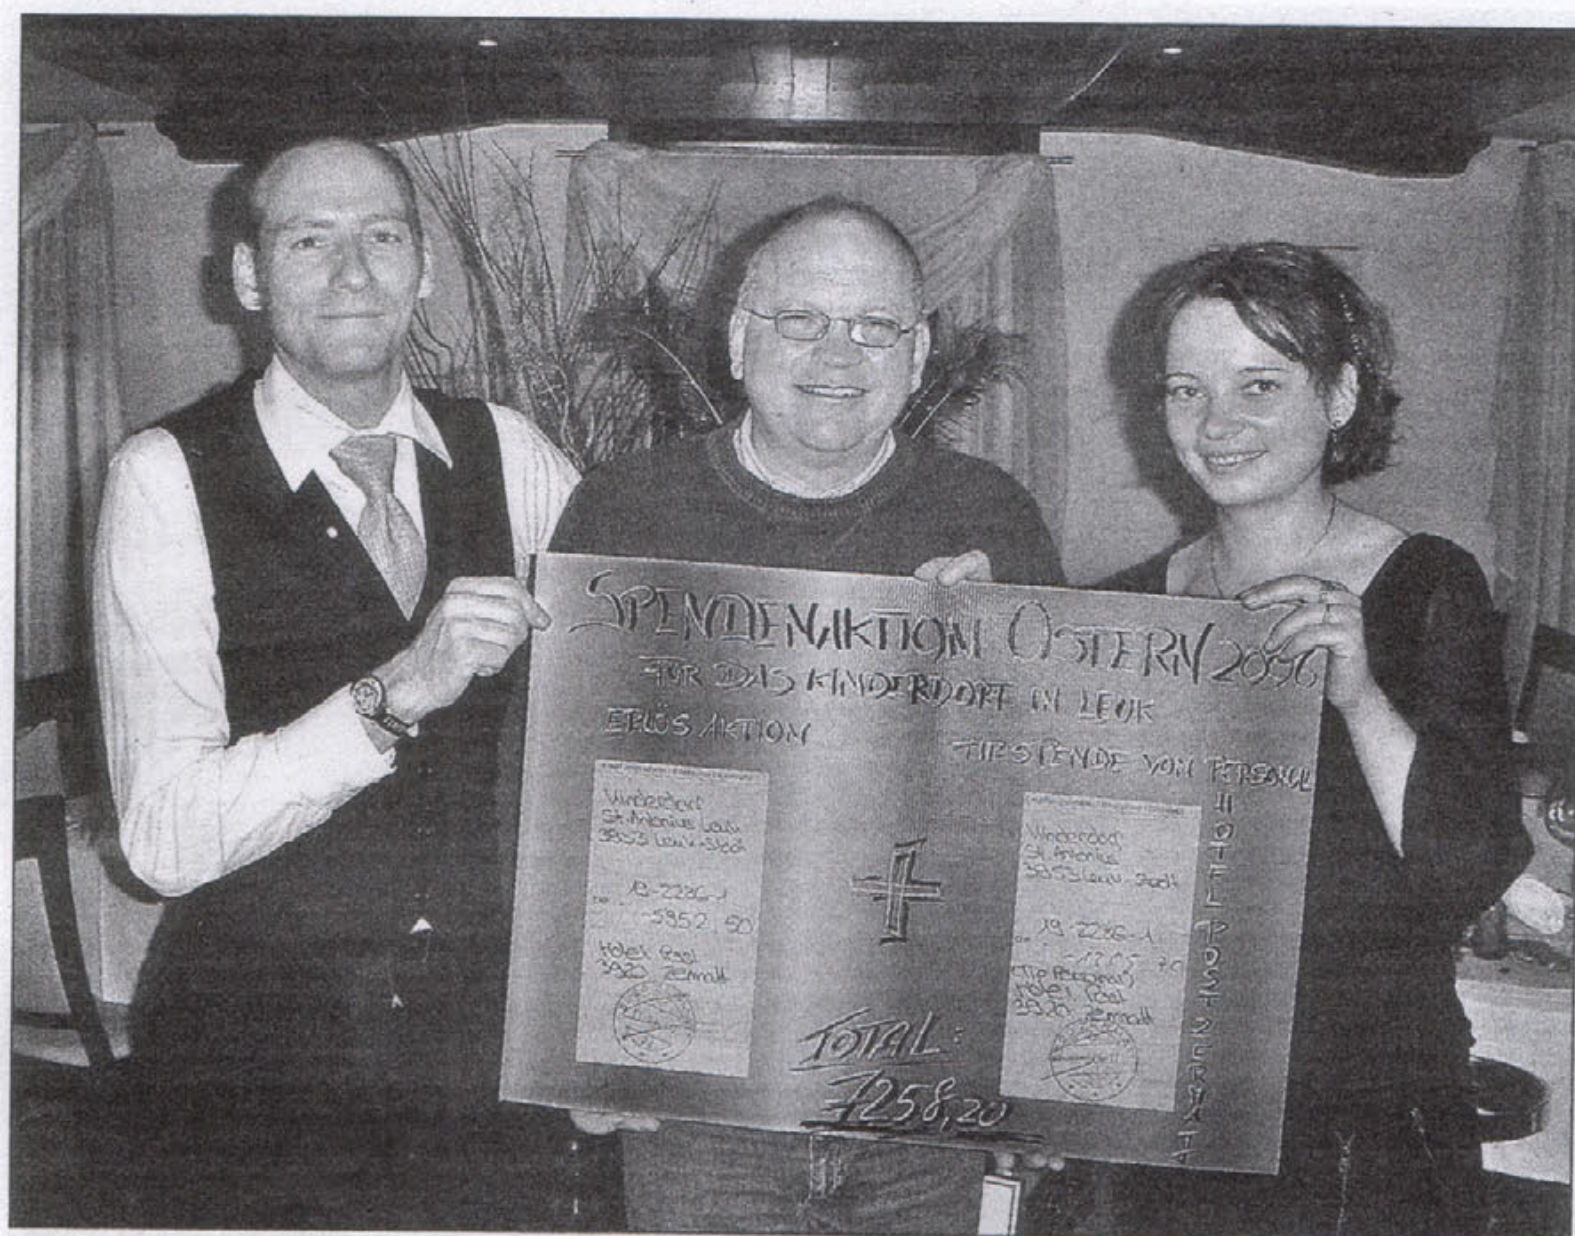 SPENDENAKTION OSTERN 2006
FÜR DAS KINDERDORF IN LEUK
ERLÖS AKTION
TIPSPENDE VOM PERSONAL
HOTEL POST ZERMATT
Kinderdorf
St. Antonius Leuk
3953 Leuk-Stadt
19-2286-1
5952,50
Hotel Post
3920 Zermatt
Kinderdorf
St. Antonius
3953 Leuk-Stadt
19-2286-1
(Tip Personal)
Hotel Post
3920 Zermatt
TOTAL:
7258,20